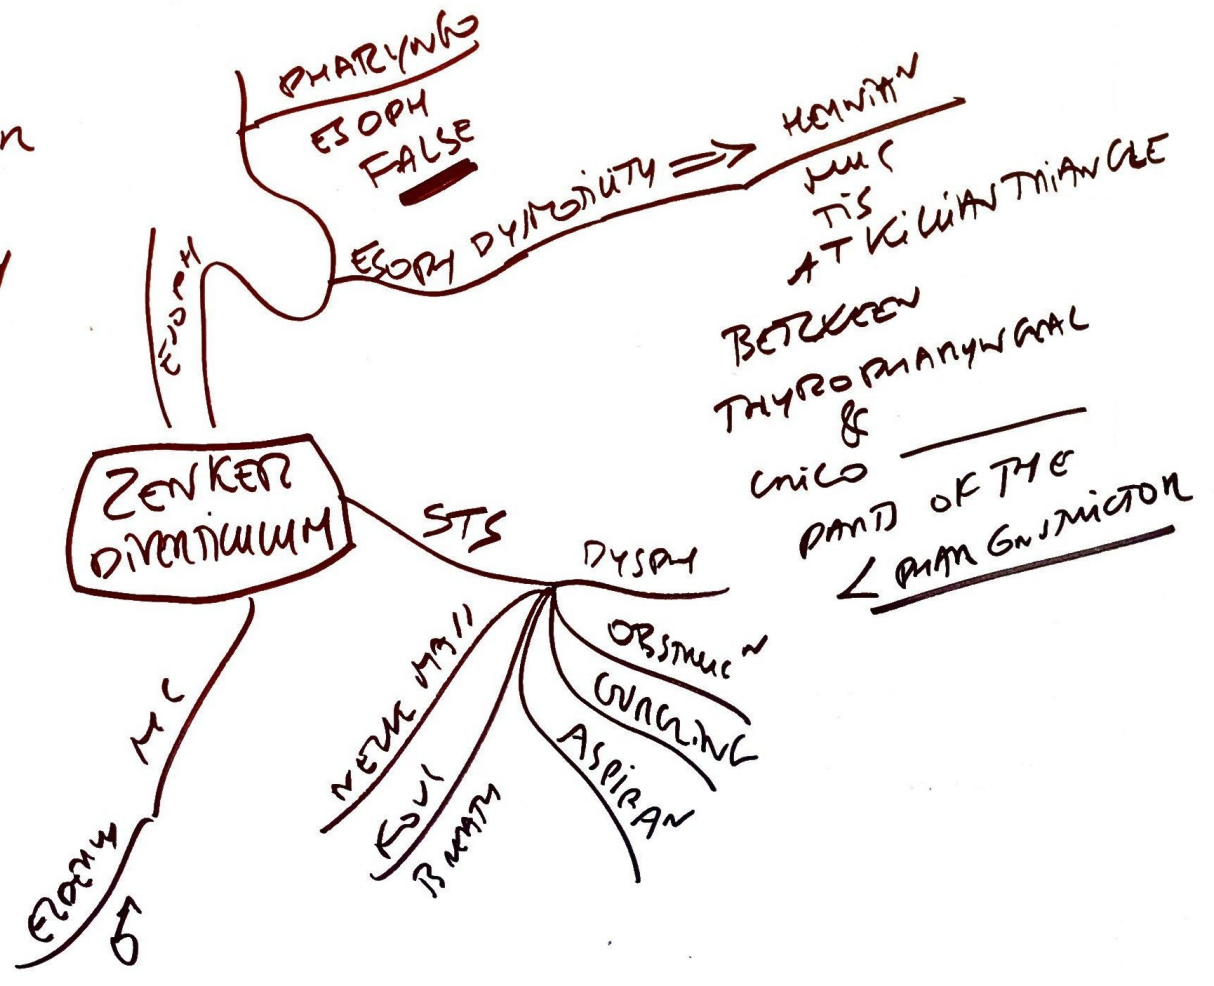 PHARYNGO
ESOPH
FALSE
ESOPH DYSMOTILITY ⇒ HERNIAN
MUC
TIS
AT KILLIAN TRIANGLE
BETWEEN
THYROPHARYNGEAL
&
CRICO ____
PARTS OF THE
< PHAR CONSTRICTOR
ESOPH
ZENKER
DIVERTICULUM
STS
DYSPH
OBSTRUC N
GURGLING
ASPIRAN
FOUL
BREATH
NECK MASS
MC
ELDERLY
♂